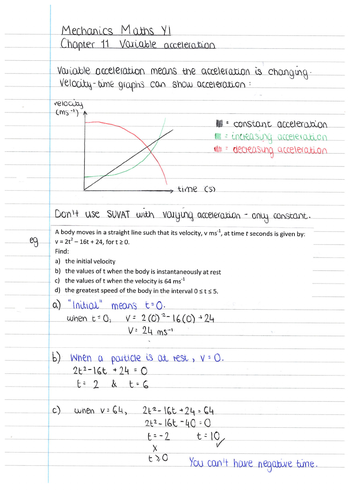 Mechanics Maths Y1
Chapter 11 Variable acceleration
Variable acceleration means the acceleration is changing.
Velocity-time graphs can show acceleration:
velocity
(ms⁻¹)
= constant acceleration
= increasing acceleration
= decreasing acceleration
time (s)
Don't use SUVAT with varying acceleration - only constant.
eg
A body moves in a straight line such that its velocity, v ms⁻¹, at time t seconds is given by:
v = 2t² – 16t + 24, for t ≥ 0.
Find:
a) the initial velocity
b) the values of t when the body is instantaneously at rest
c) the values of t when the velocity is 64 ms⁻¹
d) the greatest speed of the body in the interval 0 ≤ t ≤ 5.
a) "Initial" means t=0.
when t=0, v = 2(0)² - 16(0) + 24
v = 24 ms⁻¹
b) When a particle is at rest, v = 0.
2t² - 16t + 24 = 0
t = 2 & t = 6
c) when v = 64, 2t² - 16t + 24 = 64
2t² - 16t - 40 = 0
t = -2 t = 10
x ✓
t ≥ 0
You can't have negative time.